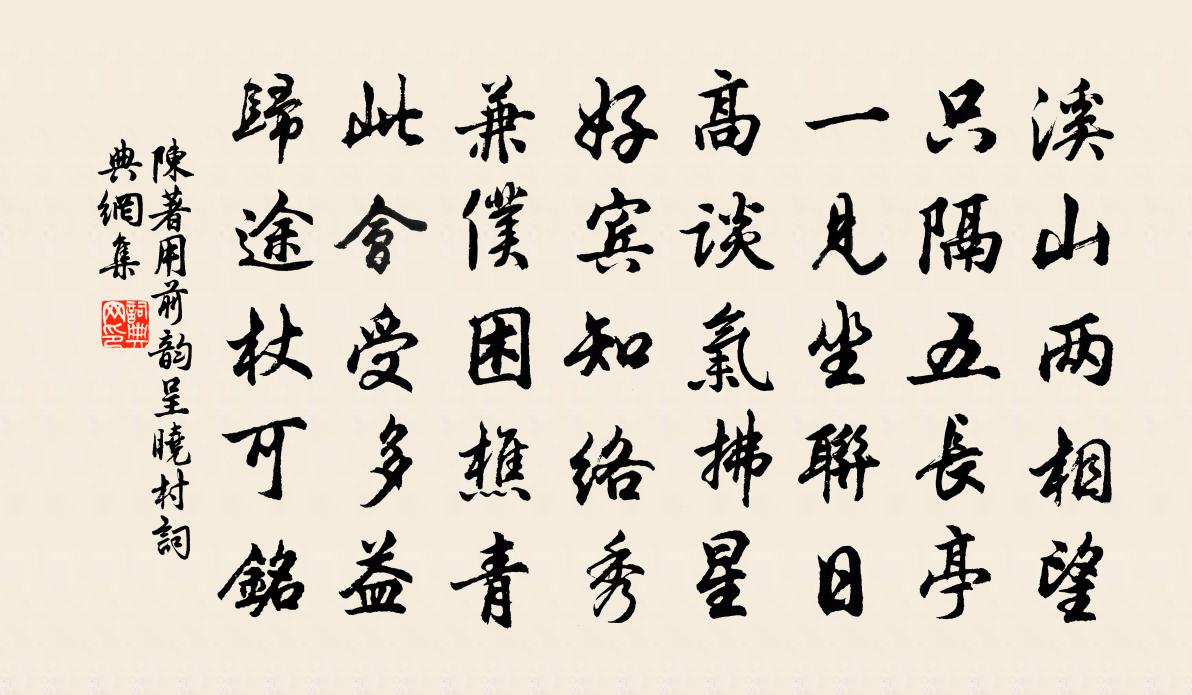 溪山两相望
只隔五長亭
一見坐聯日
高談氣拂星
好宾知絡秀
兼僕困樵青
此會受多益
歸途杖可銘
陳著用前韵呈曉村詞
典網集
詞典网印